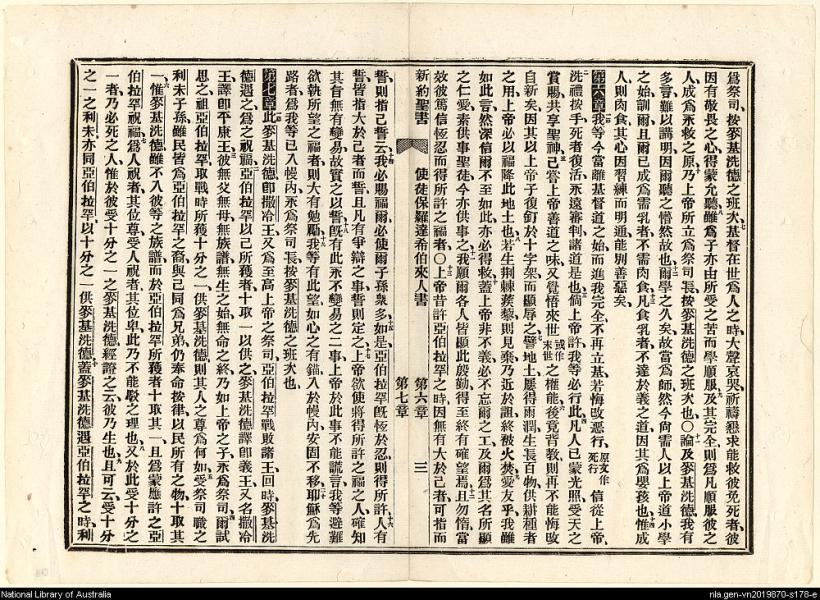 爲祭司按麥基洗德之班次基督在世爲人之時大聲哀哭祈禱懇求能救彼免死者彼
因有敬畏之心得蒙允聽雖爲子亦由所受之苦而學順服及其完全則爲凡順服彼之
人成爲永救之原乃上帝所立爲祭司長按麥基洗德之班次也○論及麥基洗德我有
多言難以講明因爾聽之懵然故也爾學之久矣故當爲師然今尚需人以上帝道小學
之始訓爾且爾已成爲需乳者不需肉食凡食乳者不達於義之道因其爲嬰孩也惟成
人則肉食其心因習練而明通能別善惡矣
第六章 我等今當離基督道之始而進我完全不再立基若悔改惡行原文作死行信從上帝
洗禮按手死者復活永遠審判諸道是也倘上帝許我等必行此凡人已蒙光照受天之
賞賜共享聖神已嘗上帝善道之味又覺悟來世或作末世之權能後竟背教則再不能悔改
自新矣因其以上帝子復釘於十字架而顯辱之譬地土屢得雨潤生長百物供耕種者
之用上帝必以福降此地土也若生荆棘蒺藜則見棄乃近於詛終被火焚愛友乎我雖
如此言然深信爾不至如此亦必得救蓋上帝非不義必不忘爾之工及爾爲其名所顯
之仁愛素供事聖徒今亦供事之我願爾各人皆顯此殷勤得至終有確望焉且勿惰當
效彼篤信恆忍而得所許之福者○上帝昔許亞伯拉罕之時因無有大於己者可指而
新約聖書 使徒保羅達希伯來人書 第六章 第七章 三
誓則指己誓云我必賜福爾必使爾子孫衆多如是亞伯拉罕旣恆於忍則得所許人有
誓皆指大於己者而誓且凡有爭辯之事誓則定之上帝欲使將得所許之福之人確知
其旨無有變易故實之以誓旣有此永不變易之二事上帝於此事不能謊言我等避難
欲執所望之福者則大有勉勵我等有此望如心之有錨入於幔內安固不移耶穌爲先
路者爲我等已入幔內永爲祭司長按麥基洗德之班次也
第七章 此麥基洗德卽撒冷王又爲至高上帝之祭司亞伯拉罕戰敗諸王回時麥基洗
德遇之爲之祝福亞伯拉罕以己所獲者十取一以供之麥基洗德譯卽義王又名撒冷
王譯卽平康王彼無父無母無族譜無生之始無命之終乃如上帝之子永爲祭司爾試
思之祖亞伯拉罕取戰時所獲十分之一供麥基洗德則其人之尊爲何如受祭司職之
利未子孫雖民皆爲亞伯拉罕之裔與己同爲兄弟仍奉命按律以民所有之物十取其
一惟麥基洗德雖不入彼等之族譜而於亞伯拉罕所獲者十取其一且爲蒙應許之亞
伯拉罕祝福爲人祝者其位尊受人祝者其位卑此乃不能駁之理也又於此受十分之
一者乃必死之人惟於彼受十分之一之麥基洗德經證之云彼乃生也且可云受十分
之一之利未亦同亞伯拉罕以十分之一供麥基洗德蓋麥基洗德遇亞伯拉罕之時利
National Library of Australia
nla.gen-vn2019870-s178-e